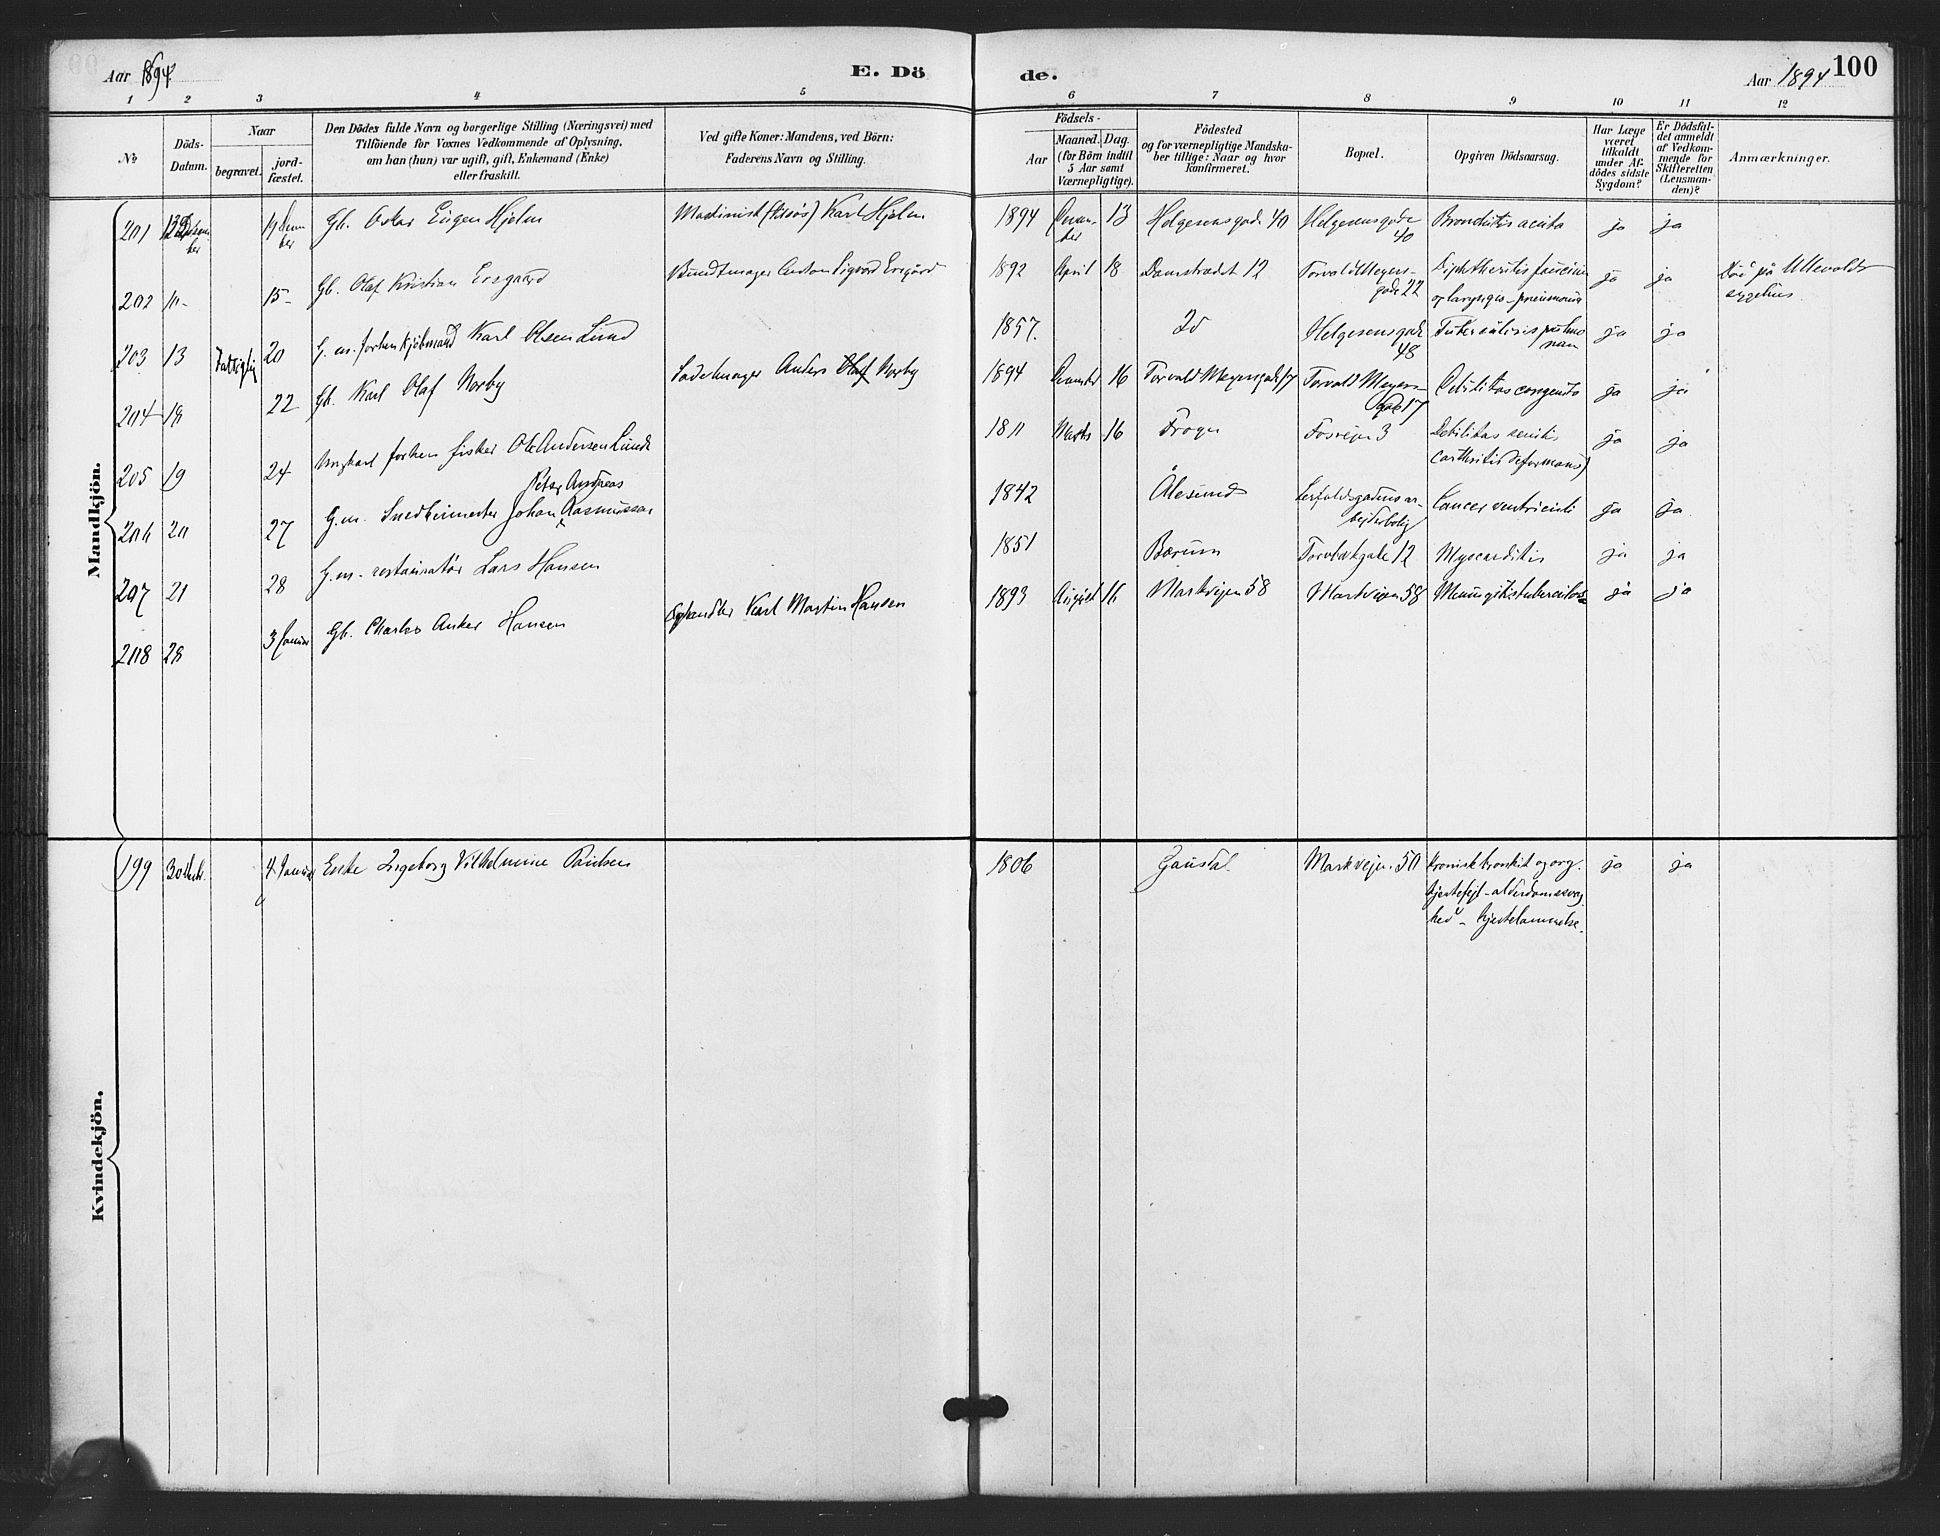 Aar 1894. E. Dö de. Aar 1894 100
1 2 3 4 5 6 7 8 9 10 11 12
No
Döds-
Datum.
Naar
begravet.
jord-
fæstet.
Den Dödes fulde Navn og borgerlige Stilling (Næringsvei) med
Tilföiende for Voxnes Vedkommende af Oplysning,
om han (hun) var ugift, gift, Enkemand (Enke)
eller fraskilt.
Ved gifte Koner: Mandens, ved Börn:
Faderens Navn og Stilling.
Födsels-
Aar
Maaned. Dag.
(for Börn indtil
5 Aar samt
Værnepligtige).
Födested
og for værnepligtige Mandska-
ber tillige: Naar og hvor
konfirmeret.
Bopæl.
Opgiven Dödsaarsag.
Har Læge
været
tilkaldt
under Af-
dödes sidste
Sygdom?
Er Dödsfal-
det anmeldt
af Vedkom-
mende for
Skifteretten
(Lensman-
den)?
Anmærkninger.
Mandkjön.
201 19 Gb. Oskar Eugen Hjelm Maskinist Karl Hjelm 1894 Decem- 13 Helgesensgade 40 Helgesensgade Bronchitis acuta ja ja
ber ber ber 40
202 10- 15- Gb. Olaf Kristian Ersgaard Bundtmager Anton Sigvard Ersgård 1892 April 18 Damstrædet 12 Torvald Meyers- Diphtheritis faucium ja ja Död på Ullevolds
gade 22 og laryngis - pneumonia sygehus
203 13 20 G. m. forhen kjöbmand Karl Olsen Lund 1857. Helgesensgade Tuberculosis pulmo ja ja
48 num
204 18 22 Gb. Karl Olaf Norby Sadelmager Anders Olaf Norby 1894 16 Torvald Meyersgade 17 Torvald Meyers Debilitas congenita ja ja
gade 17
205 19 24 Ungkarl forhen fisker Ole Andersen Lunde 1811 Marts 16 Frogn Fosvejen 3 Debilitas senilis ja ja
(arthritis deformans)
Peter Andreas
206 20 27 G.m. Snedkermester Johan Rasmussen 1842 Ålesund Cancer ventriculi ja ja.
bejderbolig
207 21 28 G.m. restauratör Lars Hansen 1851 Bærum 12 Myocarditis ja ja
208 28 3 Januar Gb. Charles Anker Hansen Karl Martin Hansen 1893 August 16 Markvejen 58 Markvejen 58 ja ja
Kvindekjön.
199 30 4 Januar Enke Ingeborg Vilhelmine Paulsen 1806 Markvejen 50 kronisk bronkit og org. ja ja
hjertefejl - alderdomssvag
hed - hjertelammelse.